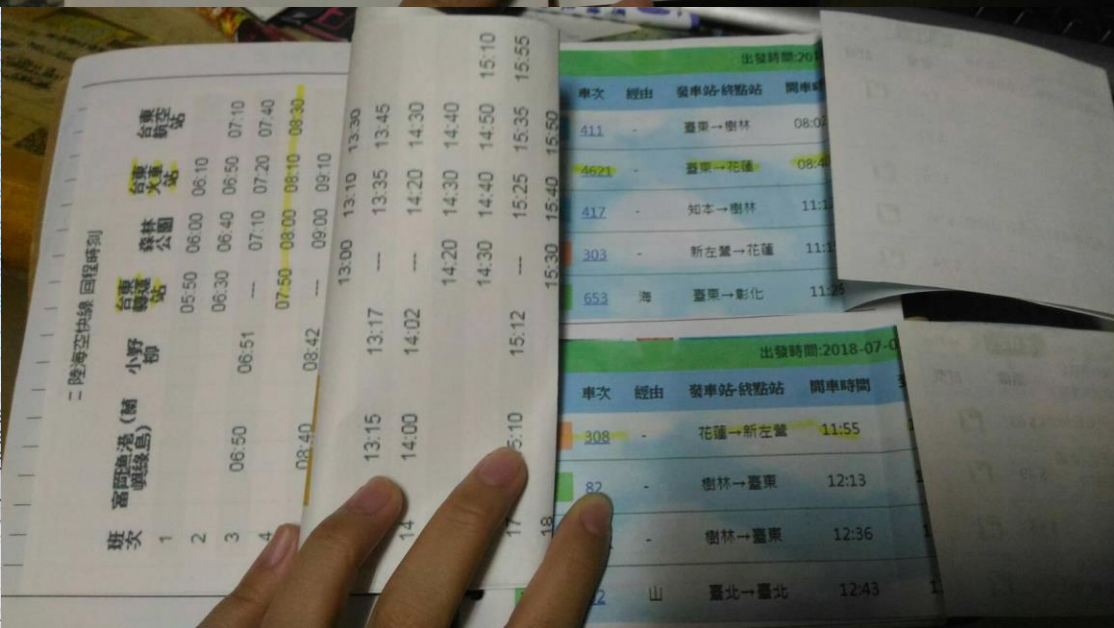 二 陸海空快線 回程時刻
班次 富岡漁港(蘭嶼綠島) 小野柳 台東轉運站 森林公園 台東火車站 台東航空站
1 05:50 06:00 06:10
2 06:30 06:40 06:50 07:10
3 06:50 06:51 --- 07:10 07:20 07:40
4 07:50 08:00 08:10 08:30
08:40 08:42 --- 09:00 09:10
13:00 13:10 13:30
13:15 13:17 --- 13:35 13:45
14 14:00 14:02 --- 14:20 14:30
14:20 14:30 14:40
14:30 14:40 14:50 15:10
17 5:10 15:12 --- 15:25 15:35 15:55
18 15:30 15:40 15:50
出發時間:201
車次 經由 發車站-終點站 開車時
411 - 臺東→樹林 08:0
4621 - 臺東→花蓮 08:4
417 - 知本→樹林 11:1
303 - 新左營→花蓮 11:1
653 海 臺東→彰化 11:2
出發時間:2018-07-0
車次 經由 發車站-終點站 開車時間
308 - 花蓮→新左營 11:55
82 - 樹林→臺東 12:13
- 樹林→臺東 12:36
2 山 臺北→臺北 12:43